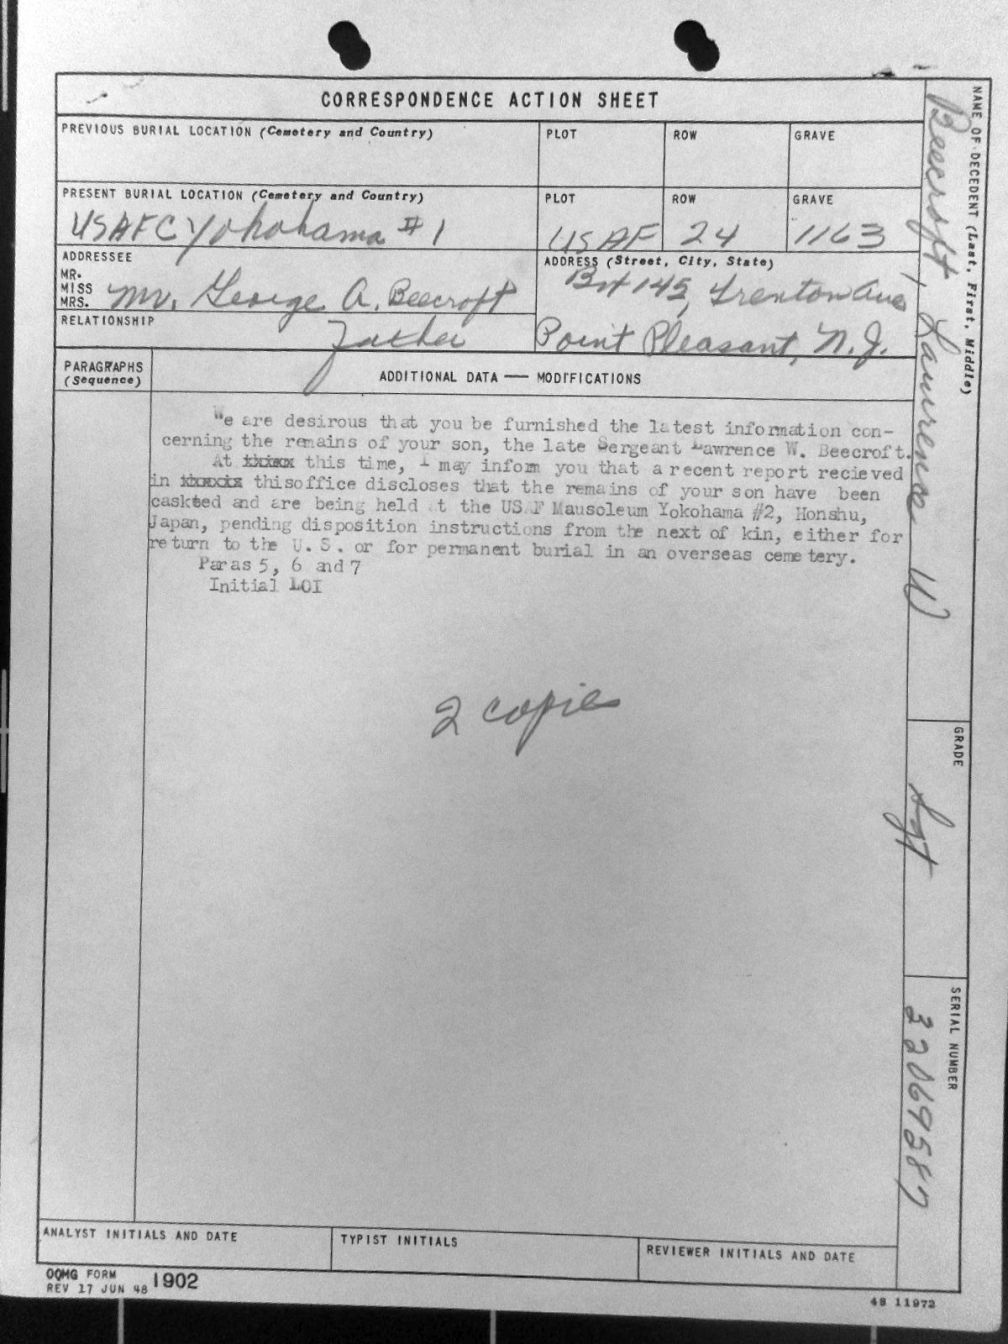 CORRESPONDENCE ACTION SHEET
PREVIOUS BURIAL LOCATION (Cemetery and Country) PLOT ROW GRAVE
PRESENT BURIAL LOCATION (Cemetery and Country) PLOT ROW GRAVE
USAFC Yokohama #1 USAF 24 1163
ADDRESSEE ADDRESS (Street, City, State)
MR.
MISS
MRS. Mr. George A. Beecroft Bx 145, Trenton Ave
RELATIONSHIP Father Point Pleasant, N.J.
PARAGRAPHS
(Sequence) ADDITIONAL DATA — MODIFICATIONS
We are desirous that you be furnished the latest information con-
cerning the remains of your son, the late Sergeant Lawrence W. Beecroft.
At xxxxx this time, I may infom you that a recent report recieved
in xxxxxxx thisoffice discloses that the remains of your son have been
caskted and are being held at the USAF Mausoleum Yokohama #2, Honshu,
Japan, pending disposition instructions from the next of kin, either for
return to the U.S. or for permanent burial in an overseas cemetery.
Paras 5, 6 and 7
Initial LOI
2 copies
ANALYST INITIALS AND DATE TYPIST INITIALS REVIEWER INITIALS AND DATE
OQMG FORM
REV 17 JUN 48 1902
48 11972
NAME OF DECEDENT (Last, First, Middle)
Beecroft, Lawrence W
GRADE
Sgt
SERIAL NUMBER
32069587